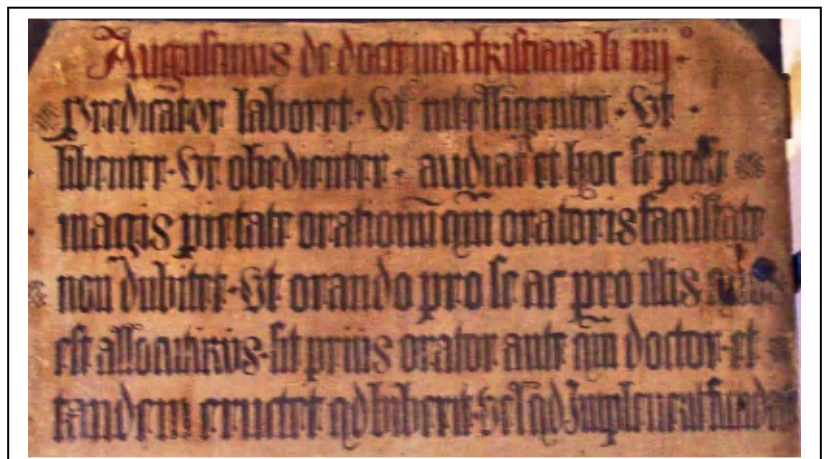 Augustinus de doctrina christiana li iiij°
Predicator laboret · Vt intelligenter · Vt
libenter · Vt obedienter · audiat et hoc se posse
magis pietate orationū qm̄ oratoris facultate
non dubitet · Vt orando pro se ac pro illis quos
est allocuturus · sit prius orator ante qm̄ doctor · et
tandem eructet qd biberit · Vel qd Impleuerit fundat